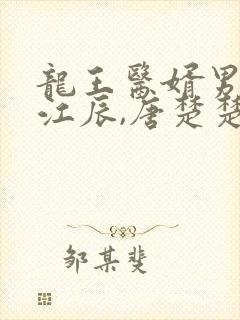 龍王醫婿男
江辰,唐楚楚
邹某斐